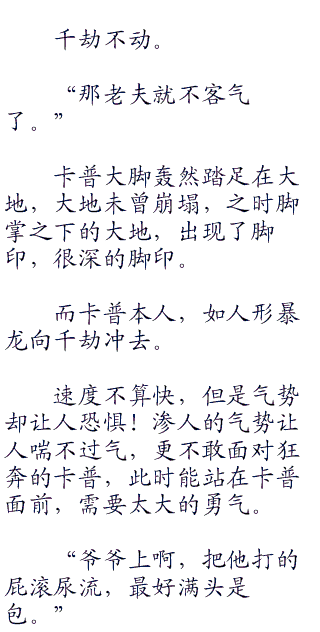 千劫不动。
“那老夫就不客气
了。”
卡普大脚轰然踏足在大
地，大地未曾崩塌，之时脚
掌之下的大地，出现了脚
印，很深的脚印。
而卡普本人，如人形暴
龙向千劫冲去。
速度不算快，但是气势
却让人恐惧！渗人的气势让
人喘不过气，更不敢面对狂
奔的卡普，此时能站在卡普
面前，需要太大的勇气。
“爷爷上啊，把他打的
屁滚尿流，最好满头是
包。”